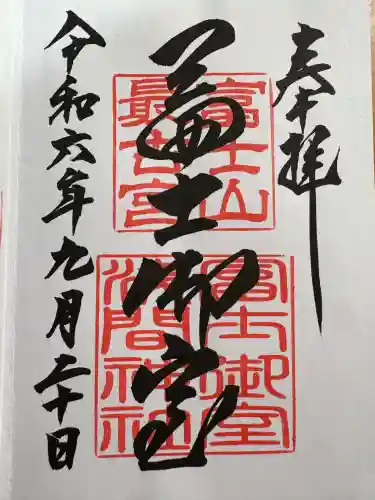 奉拝
富士山最古宮
冨士御室
冨士御室浅間神社
令和六年九月二十日